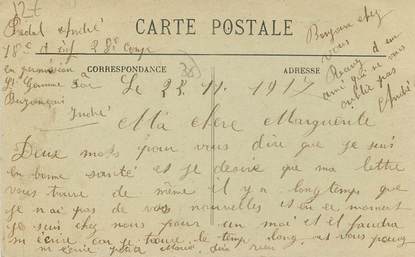 CARTE POSTALE
CORRESPONDANCE
ADRESSE
André
18e 28e Comp
en permission à
St Gemme par
Buzançais
Indré
Bonjour chez
vous
Recevez d'un
ami qui ne vous
oublie pas
André
Le 22 11 1917
Ma chere Marguerite
Deux mots pour vous dire que je suis
en bonne santé et je desire que ma lettre
vous trouve de même il y a longtemps que
je n'ai pas de vos nouvelles et en ce moment
je suis chez nous pour un moi et il faudra
m'écrire car je trouve le temp long et vous pouvez
m'ecrire